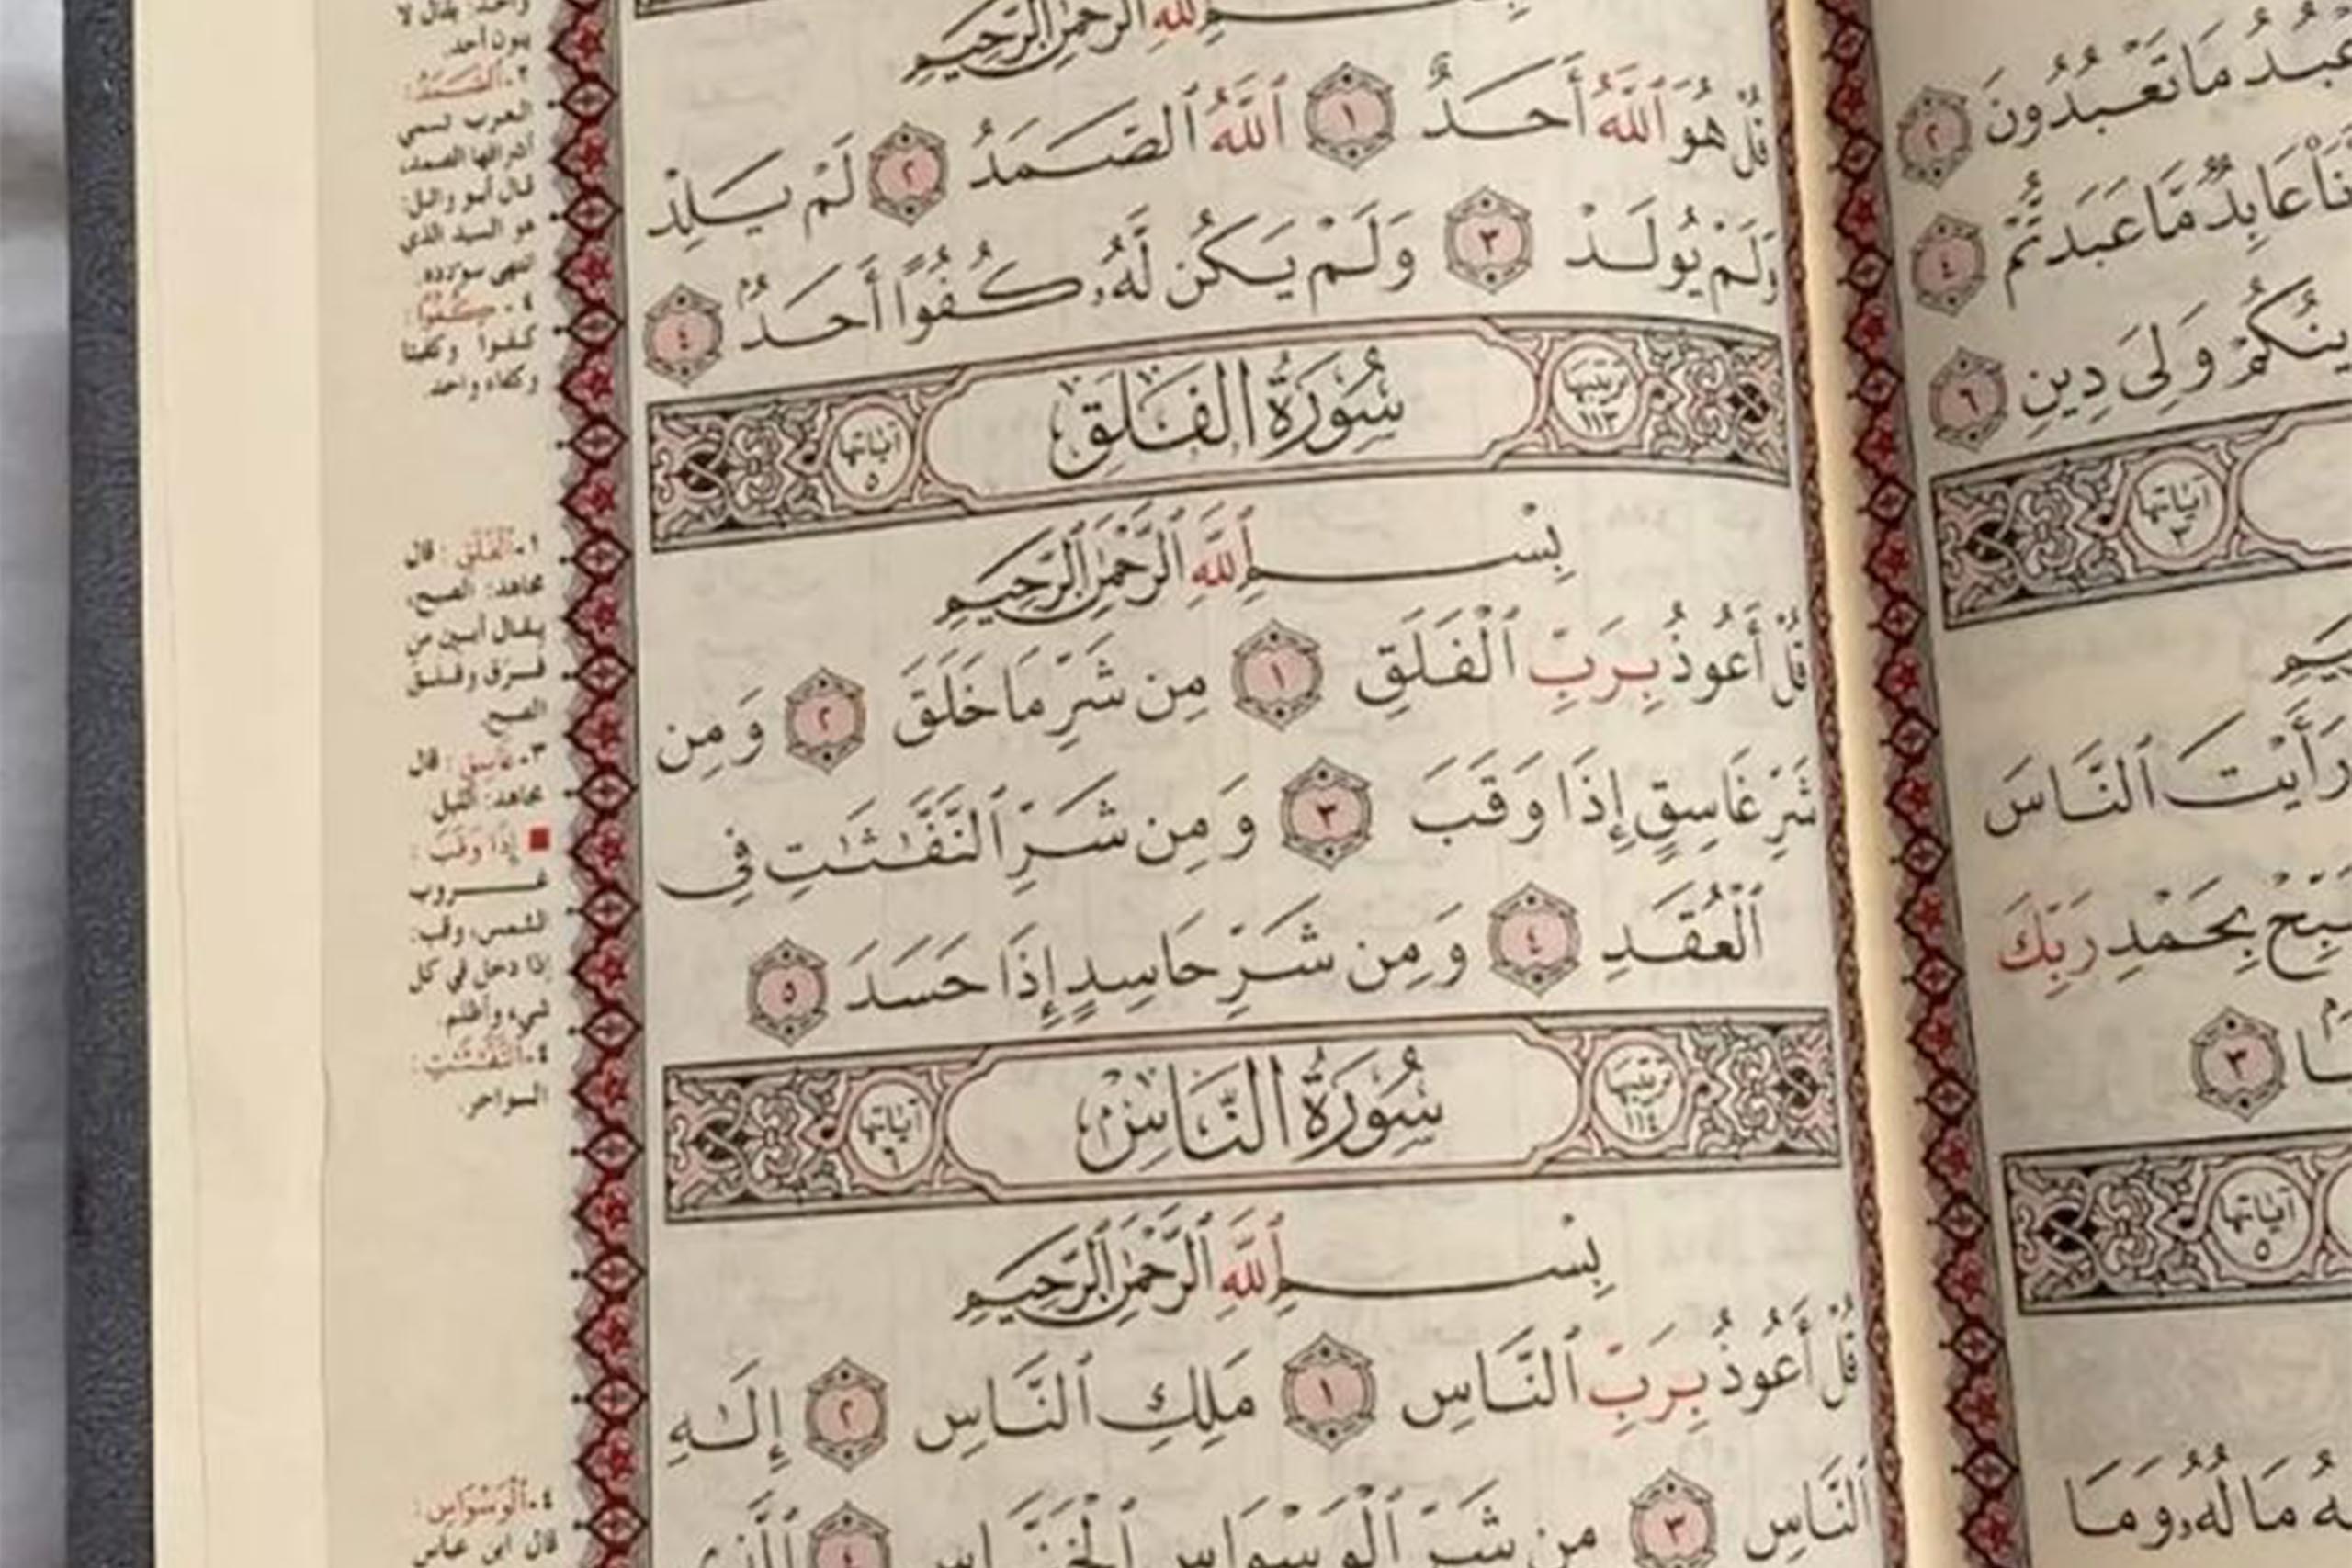 بِسْمِ ٱللَّهِ ٱلرَّحْمَٰنِ ٱلرَّحِيمِ
قُلْ هُوَ ٱللَّهُ أَحَدٌ ١ ٱللَّهُ ٱلصَّمَدُ ٢ لَمْ يَلِدْ
وَلَمْ يُولَدْ ٣ وَلَمْ يَكُن لَّهُۥ كُفُوًا أَحَدٌۢ ٤
ترتيبها ١١٣ سُورَةُ الفَلَقِ آياتها ٥
بِسْمِ ٱللَّهِ ٱلرَّحْمَٰنِ ٱلرَّحِيمِ
قُلْ أَعُوذُ بِرَبِّ ٱلْفَلَقِ ١ مِن شَرِّ مَا خَلَقَ ٢ وَمِن
شَرِّ غَاسِقٍ إِذَا وَقَبَ ٣ وَمِن شَرِّ ٱلنَّفَّٰثَٰتِ فِى
ٱلْعُقَدِ ٤ وَمِن شَرِّ حَاسِدٍ إِذَا حَسَدَ ٥
ترتيبها ١١٤ سُورَةُ النَّاسِ آياتها ٦
بِسْمِ ٱللَّهِ ٱلرَّحْمَٰنِ ٱلرَّحِيمِ
قُلْ أَعُوذُ بِرَبِّ ٱلنَّاسِ ١ مَلِكِ ٱلنَّاسِ ٢ إِلَٰهِ
ٱلنَّاسِ ٣ مِن شَرِّ ٱلْوَسْوَاسِ ٱلْخَنَّاسِ ٤ ٱلَّذِى
واحد: يقال لا
ينون أحد.
٢-ٱلصَّمَدُ:
العرب تسمي
أشرافها الصمد،
قال أبو وائل:
هو السيد الذي
انتهى سؤدده.
٤-كُفُوًا:
كفوا وكفيئا
وكفاء واحد.
١-ٱلْفَلَقِ: قال
مجاهد: الصبح،
يقال أبين من
فرق وفلق
الصبح.
٣-غَاسِقٍ: قال
مجاهد: الليل
إِذَا وَقَبَ:
غروب
الشمس، وقب:
إذا دخل في كل
شيء وأظلم.
٤-ٱلنَّفَّٰثَٰتِ:
السواحر.
٤-ٱلْوَسْوَاسِ:
قال ابن عباس
مَا تَعْبُدُونَ ٢
عَابِدٌ مَّا عَبَدتُّمْ ٤
وَلِىَ دِينِ ٦
آياتها ٣
رَأَيْتَ ٱلنَّاسَ
بِحَمْدِ رَبِّكَ
٣
آياتها ٥
مَالُهُۥ وَمَا